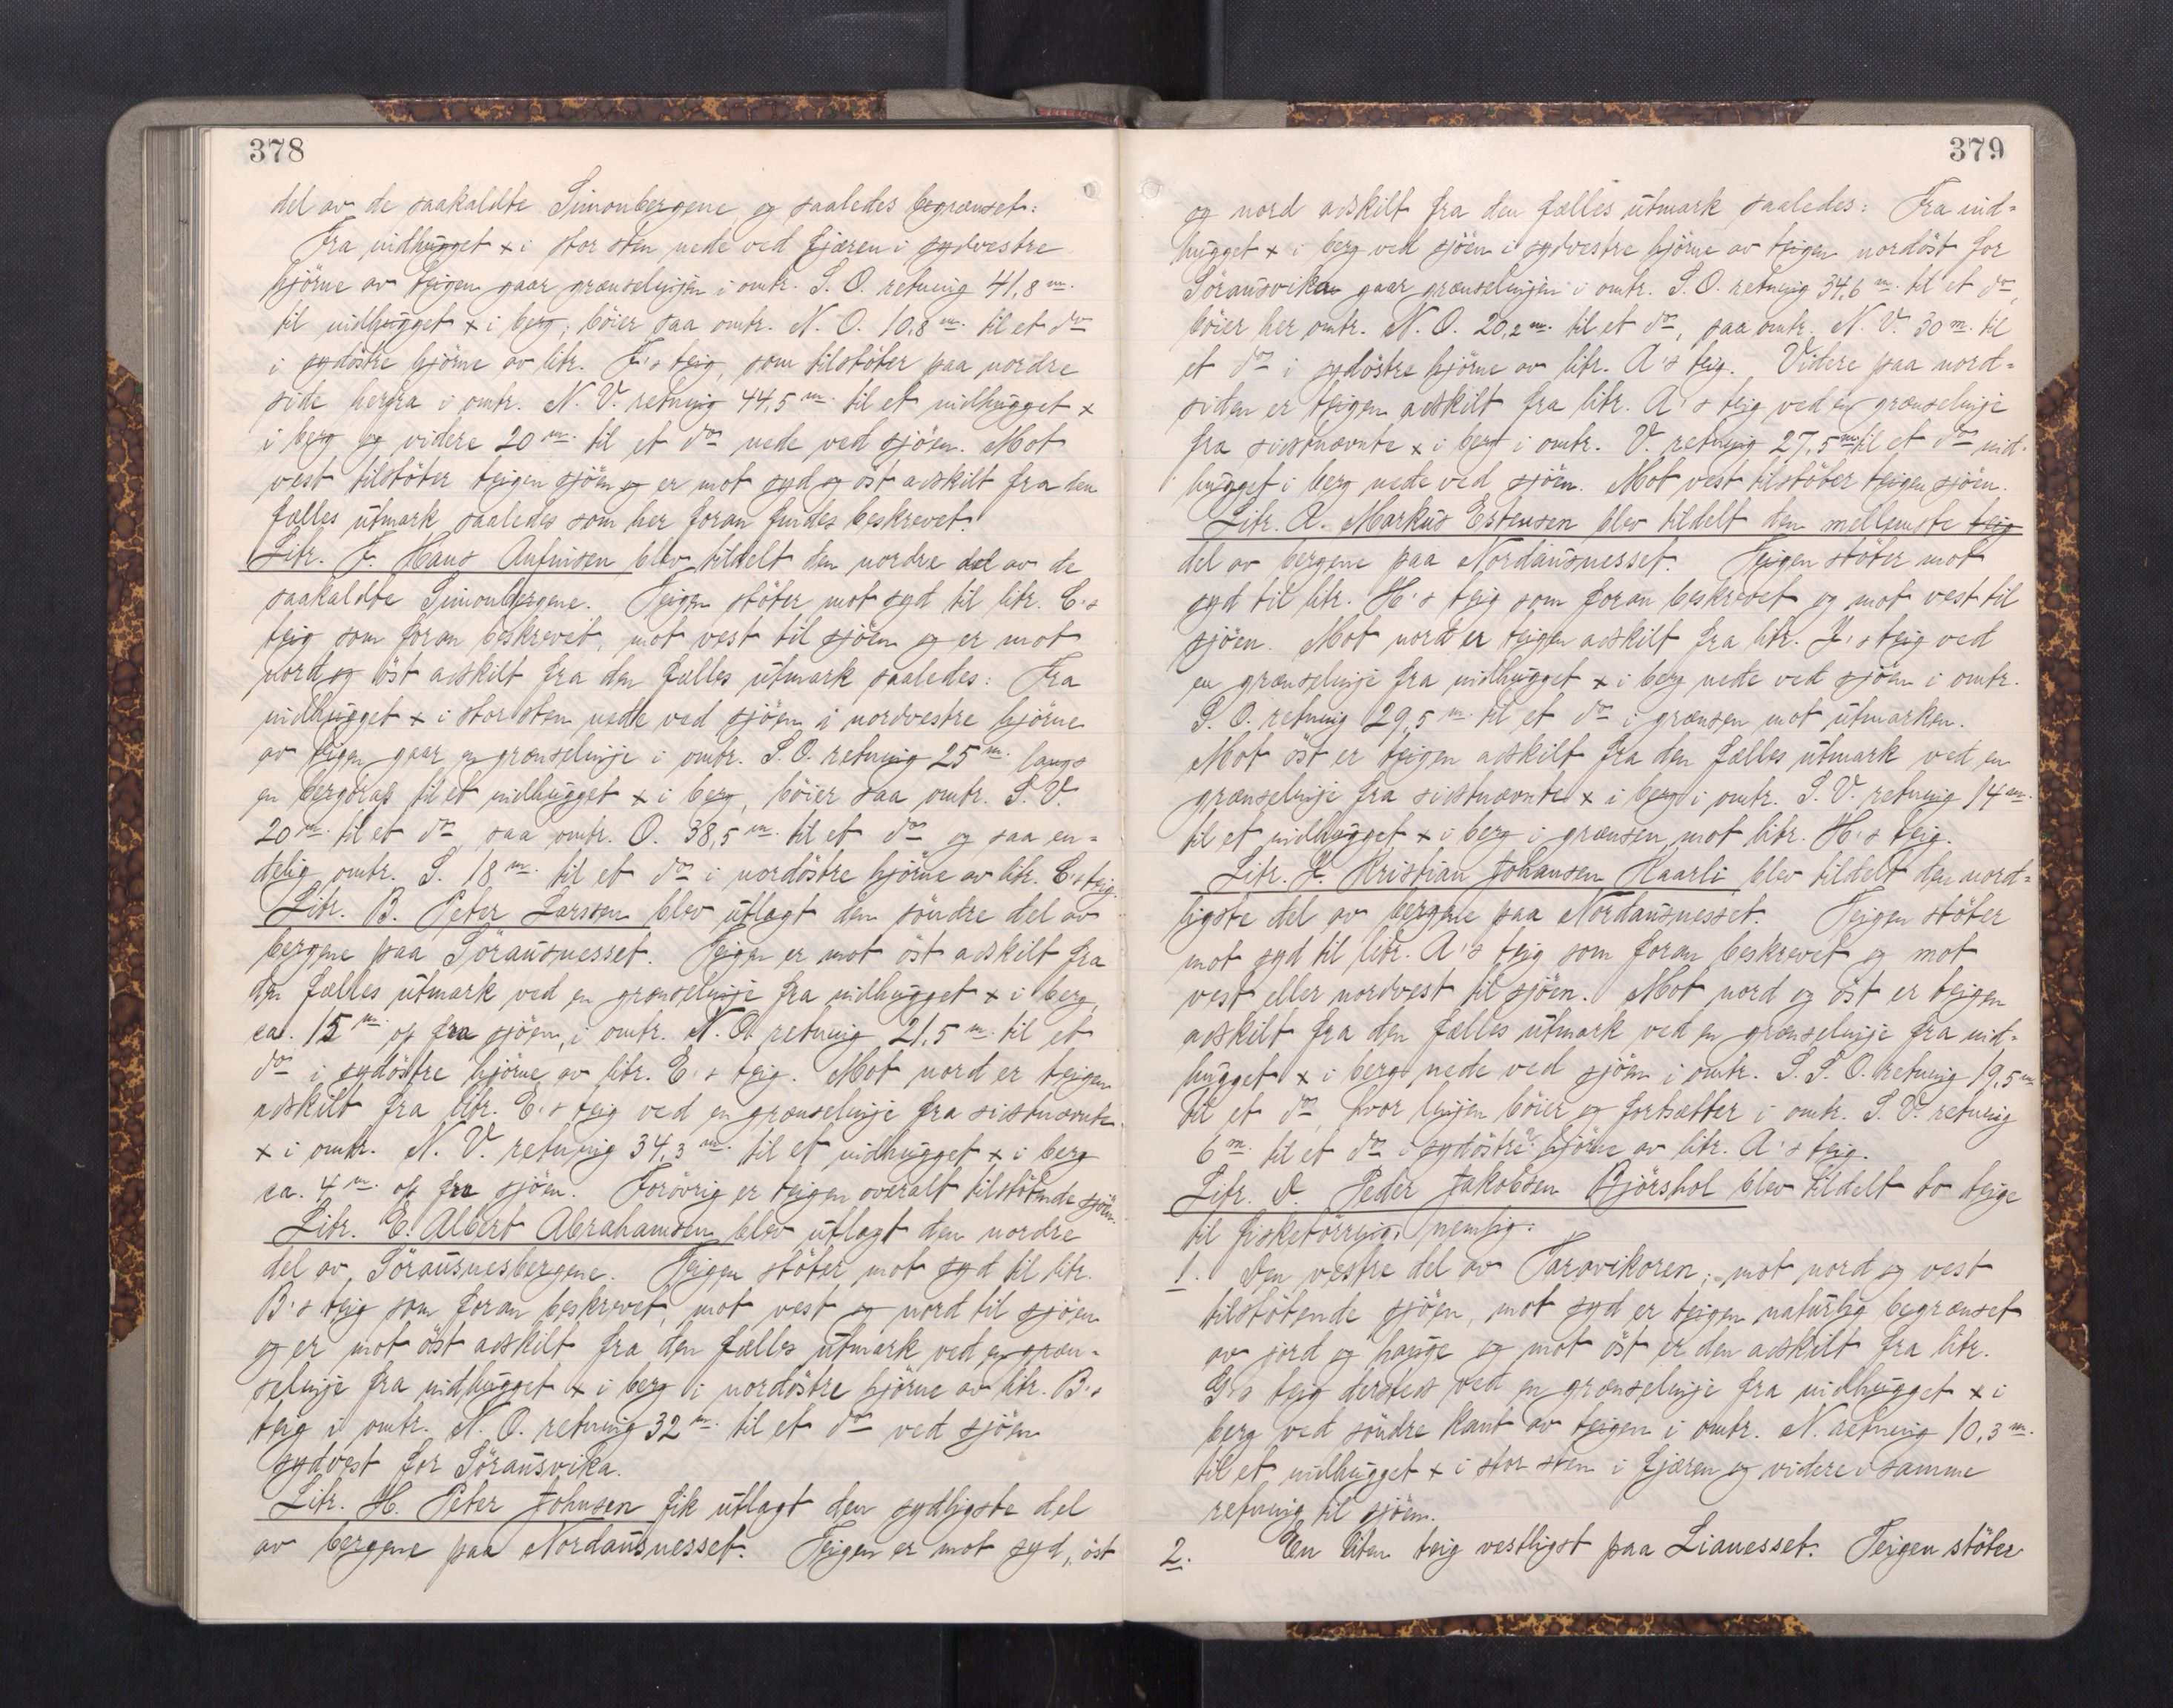 378
del av de saakaldte Simonbergene og saaledes begrænset:
Fra indhugget × i stor sten nede ved fjæren i sydvestre
hjörne av teigen gaar grænselinjen i omtr. S. O. retning 41,8 m.
til indhugget × i berg, böier saa omtr. N. O. 10,8 m. til et do
i sydöstre hjörne av litr. F's teig, som tilstöter paa nordre
side herfra i omtr. N. V. retning 44,5 m. til et indhugget ×
i berg og videre 20 m. til et do nede ved sjöen. Mot
vest tilstöter teigen sjöen og er mot syd og öst adskilt fra den
fælles utmark saaledes som her foran findes beskrevet.
Litr. F. Hans Anfinsen blev tildelt den nordre del av de
saakaldte Simonbergene. Teigen stöter mot syd til litr. C's
teig som foran beskrevet, mot vest til sjöen og er mot
nord og öst adskilt fra den fælles utmark saaledes: Fra
indhugget × i stor sten nede ved sjöen i nordvestre hjörne
av teigen gaar en grænselinje i omtr. S. O. retning 25 m. langs
en bergdrag til et indhugget × i berg, böier saa omtr. S. V.
20 m. til et do saa omtr. O. 38,5 m. til et do og saa en=
delig omtr. S. 18 m. til et do i nordöstre hjörne av litr. C's teig.
Litr. B. Peter Larssen blev utlagt den söndre del av
bergene paa Sörausnesset. Teigen er mot öst adskilt fra
den fælles utmark ved en grænselinje fra indhugget × i berg,
ca. 15 m. op fra sjöen, i omtr. N. O. retning 21,5 m. til et
do i sydöstre hjörne av litr. E's teig. Mot nord er teigen
adskilt fra litr. E's teig ved en grænselinje fra sistnævnte
× i omtr. N. V. retning 34,3 m. til et indhugget × i berg
ca. 4 m. op fra sjöen. Forövrig er teigen overalt tilstötende sjöen.
Litr. E. Albert Abrahamsen blev utlagt den nordre
del av Sörausnesbergene. Teigen stöter mot syd til litr.
B's teig som foran beskrevet, mot vest og nord til sjöen
og er mot öst adskilt fra den fælles utmark ved en græn=
selinje fra indhugget × i berg i nordöstre hjörne av litr. B's
teig i omtr. N. O. retning 32 m. til et do ved sjöen
sydvest for Sörausvika.
Litr. H. Peter Johnsen fik utlagt den sydligste del
av bergene paa Nordausnesset. Teigen er mot syd, öst
379
og nord adskilt fra den fælles utmark saaledes: Fra ind=
hugget × i berg ved sjöen i sydvestre hjörne av teigen nordöst for
Sörausvikan gaar grænselinjen i omtr. S. O. retning 34,6 m. til et do,
böier her omtr. N. O. 20,2 m. til et do, saa omtr. N. V. 30 m. til
et do i sydöstre hjörne av litr. A's teig. Videre paa nord=
siden er teigen adskilt fra litr. A's teig ved en grænselinje
fra sistnævnte × i berg i omtr. V. retning 27,5 m. til et do ind=
hugget i berg nede ved sjöen. Mot vest tilstöter teigen sjöen.
Litr. A. Markus Estensen blev tildelt den mellemste teig
del av bergene paa Nordausnesset. Teigen stöter mot
syd til litr. H's teig som foran beskrevet og mot vest til
sjöen. Mot nord er teigen adskilt fra litr. J's teig ved
en grænselinje fra indhugget × i berg nede ved sjöen i omtr.
S. O. retning 29,5 m. til et do i grænsen mot utmarken.
Mot öst er teigen adskilt fra den fælles utmark ved en
grænselinje fra sistnævnte × i berg i omtr. S. V. retning 14 m.
til et indhugget × i berg i grænsen mot litr. H's teig.
Litr. J. Kristian Johansen Haarli blev tildelt den nord=
ligste del av bergene paa Nordausnesset. Teigen stöter
mot syd til litr. A's teig som foran beskrevet og mot
vest eller nordvest til sjöen. Mot nord og öst er teigen
adskilt fra den fælles utmark ved en grænselinje fra ind=
hugget × i berg nede ved sjöen i omtr. S. S. O. retning 19,5 m.
til et do, hvor linjen böier og fortsætter i omtr. S. V. retning
6 m. til et do i sydöstre hjörne av litr. A's teig.
Litr. D. Peder Jakobsen Björshol blev tildelt to teige
til fisketörring, nemlig:
1. Den vestre del av Taravikoren; mot nord og vest
tilstötende sjöen, mot syd er teigen naturlig begrænset
av jord og hauge og mot öst er den adskilt fra litr.
G's teig dersteds ved en grænselinje fra indhugget × i
berg ved söndre kant av teigen i omtr. N. retning 10,3 m.
til et indhugget × i stor sten i fjæren og videre i samme
retning til sjöen.
2. En liten teig vestligst paa Lianesset. Teigen stöter